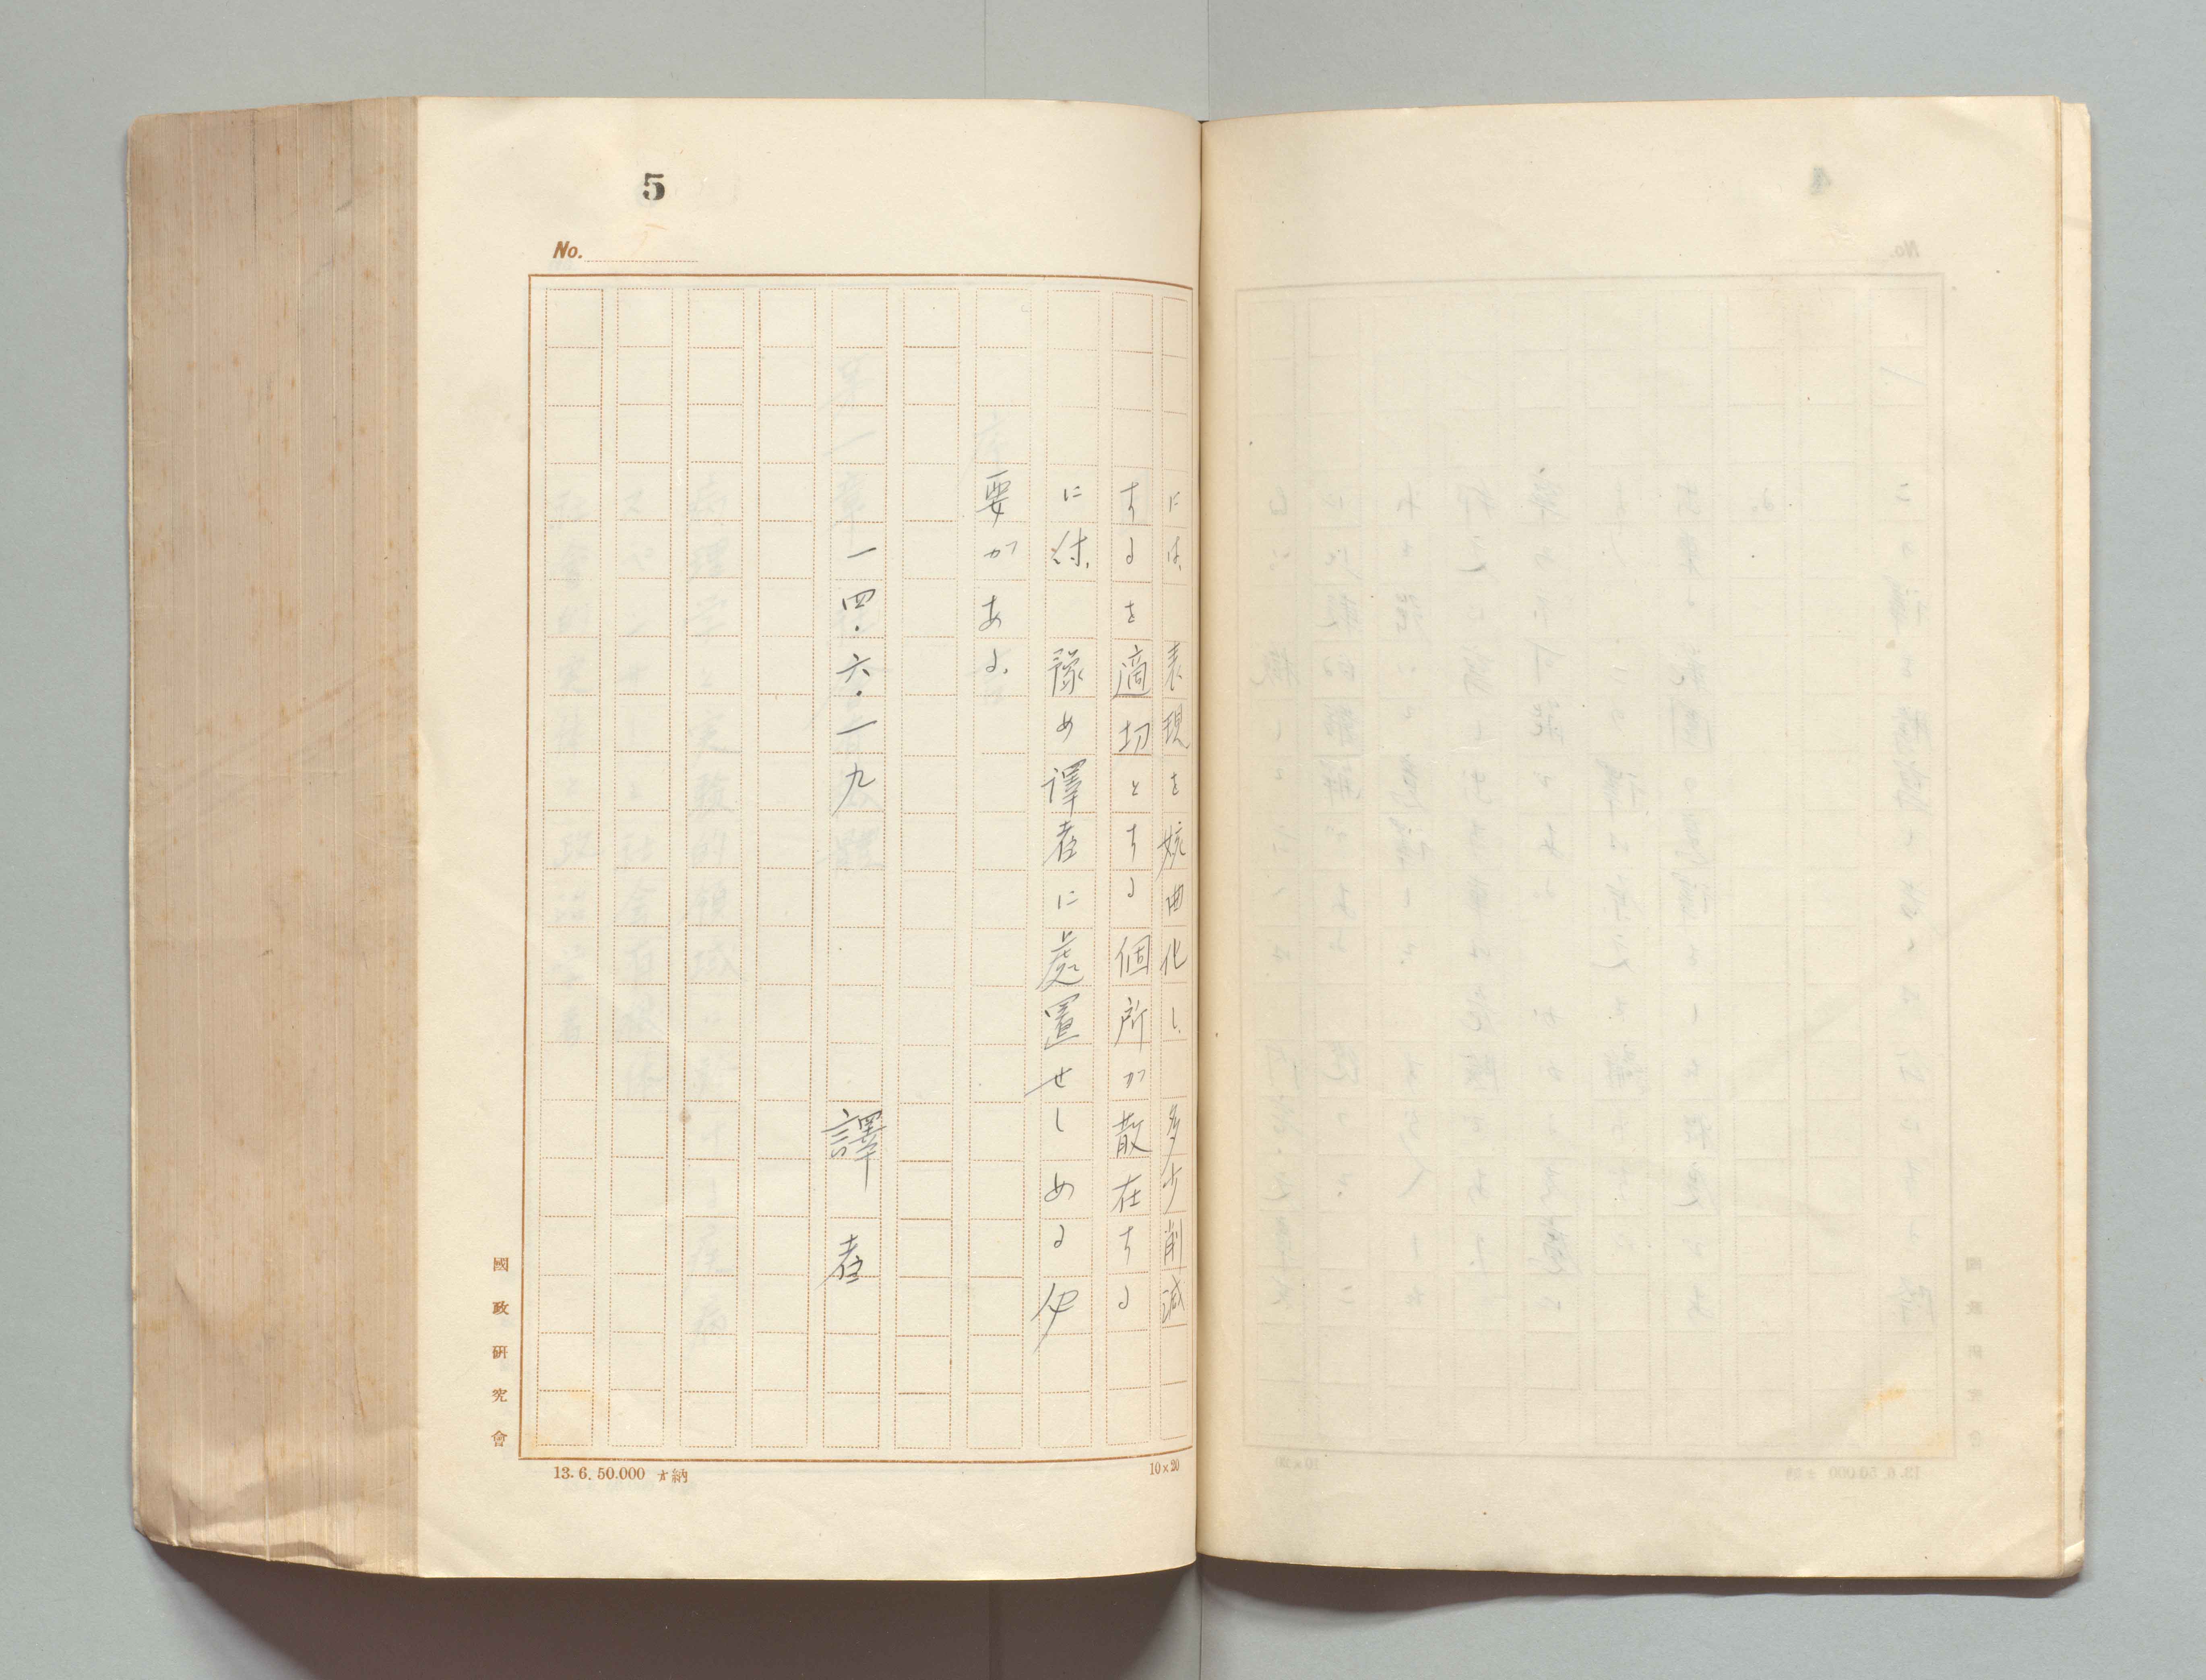 5
No.
には、表現を婉曲化し、多少削減
するを適切とする個所が散在する
に付、豫め译者に處置せしめる必
要がある。
一四・六・一九　譯者
國政研究會
13.6.50.000 納
10×20